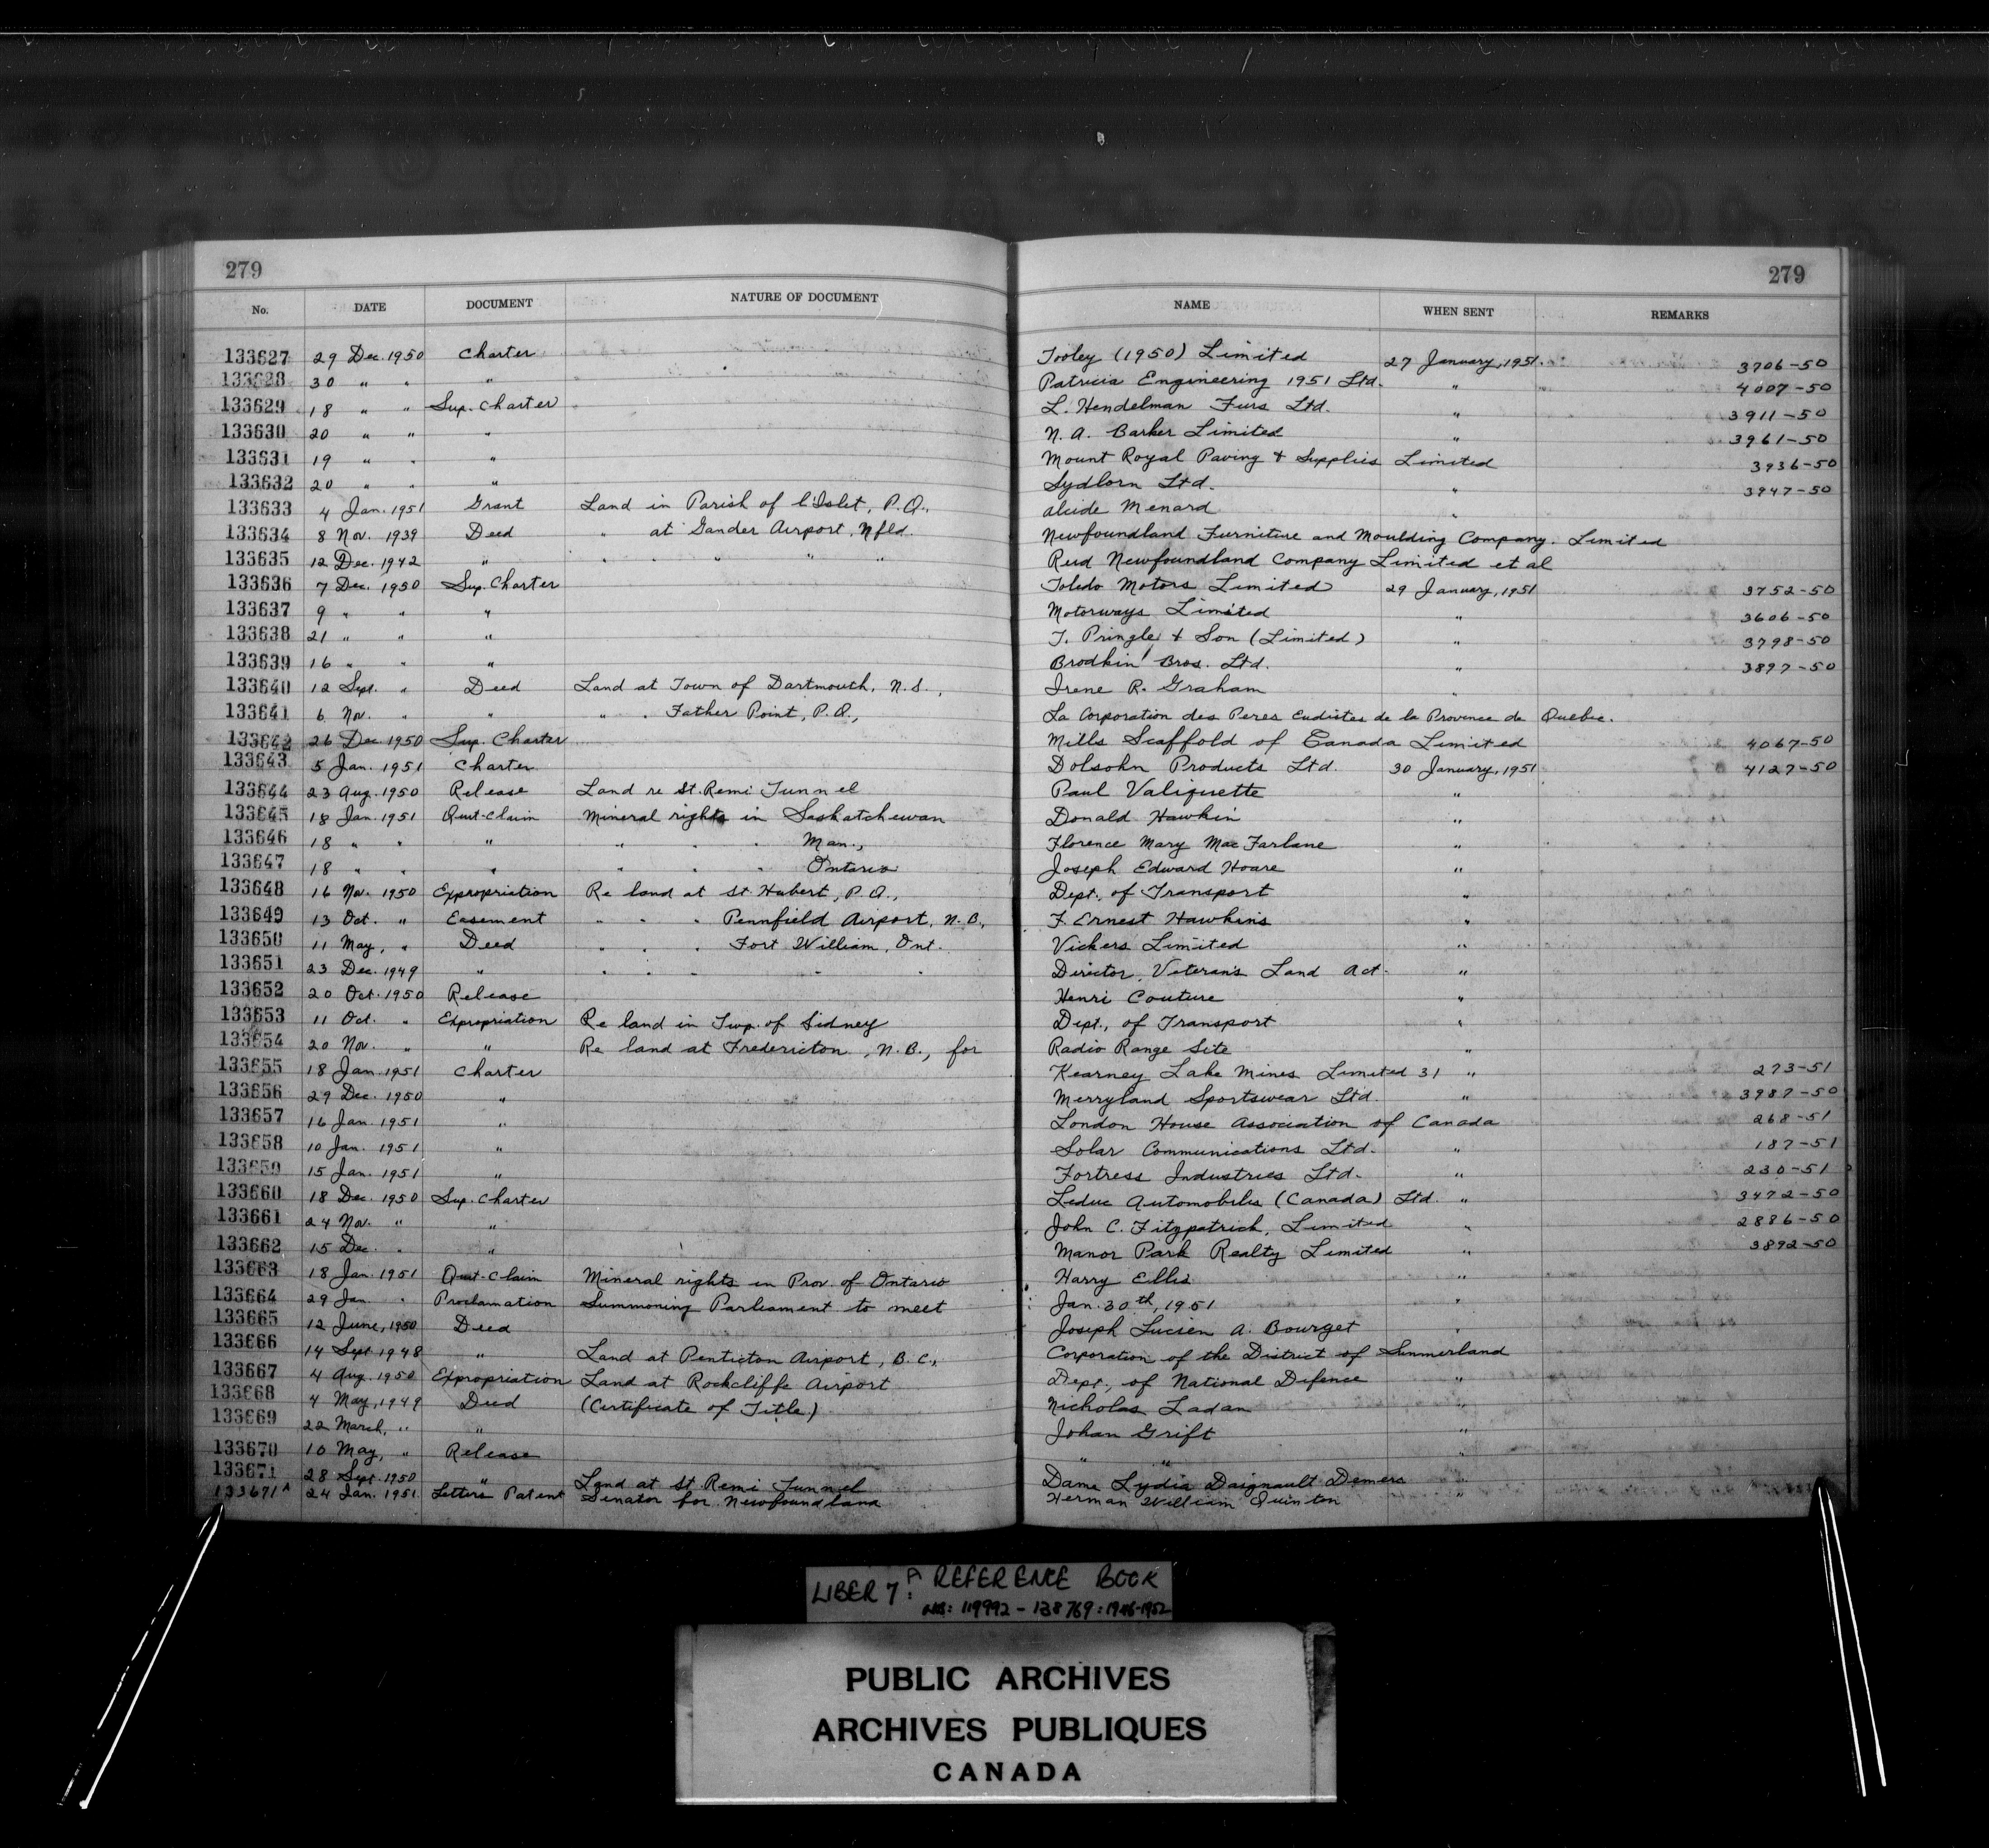 279 279
No. DATE DOCUMENT NATURE OF DOCUMENT NAME WHEN SENT REMARKS
133627 29 Dec. 1950 Charter Tooley (1950) Limited 27 January, 1951. 3706-50
133628 30 " " " Patricia Engineering 1951 Ltd. " 4007-50
133629 18 " " Sup. Charter L. Hendelman Furs Ltd. " 3911-50
133630 20 " " " N. A. Barker Limited " 3961-50
133631 19 " " " Mount Royal Paving & Supplies Limited 3936-50
133632 20 " " " Sydlorn Ltd. " 3947-50
133633 4 Jan. 1951 Grant Land in Parish of l'Islet, P.Q., Alcide Menard "
133634 8 Nov. 1939 Deed " at Gander Airport, Nfld. Newfoundland Furniture and Moulding Company. Limited
133635 12 Dec. 1942 " " " " " " Reid Newfoundland Company Limited et al
133636 7 Dec. 1950 Sup. Charter Toledo Motors Limited 29 January, 1951 3752-50
133637 9 " " " Motorways Limited " 3606-50
133638 21 " " " T. Pringle & Son (Limited) " 3798-50
133639 16 " " " Brodkin Bros. Ltd. " 3897-50
133640 12 Sept. " Deed Land at Town of Dartmouth, N.S., Irene R. Graham "
133641 6 Nov. " " " " Father Point, P.Q., La Corporation des Peres Eudistes de la Province de Quebec.
133642 26 Dec. 1950 Sup. Charter Mills Scaffold of Canada Limited 4067-50
133643 5 Jan. 1951 Charter Dolsohn Products Ltd. 30 January, 1951 4127-50
133644 23 Aug. 1950 Release Land re St. Remi Tunnel Paul Valiquette "
133645 18 Jan. 1951 Quit-Claim Mineral rights in Saskatchewan Donald Hawkin "
133646 18 " " " " " " Man., Florence Mary MacFarlane "
133647 18 " " " " " " Ontario Joseph Edward Hoare "
133648 16 Nov. 1950 Expropriation Re land at St. Hubert, P.Q., Dept. of Transport "
133649 13 Oct. " Easement " " " Pennfield Airport, N.B., F. Ernest Hawkins "
133650 11 May, " Deed " " " Fort William, Ont. Vickers Limited "
133651 23 Dec. 1949 " " " " " " Director, Veteran's Land Act. "
133652 20 Oct. 1950 Release Henri Couture "
133653 11 Oct. " Expropriation Re land in Twp. of Sidney Dept., of Transport "
133654 20 Nov. " " Re land at Fredericton, N.B., for Radio Range Site "
133655 18 Jan. 1951 Charter Kearney Lake Mines Limited 31 " 273-51
133656 29 Dec. 1950 " Merryland Sportswear Ltd. " 3987-50
133657 16 Jan. 1951 " London House Association of Canada 268-51
133658 10 Jan. 1951 " Solar Communications Ltd. " 187-51
133659 15 Jan. 1951 " Fortress Industries Ltd. " 230-51
133660 18 Dec. 1950 Sup. Charter Leduc Automobiles (Canada) Ltd. " 3472-50
133661 24 Nov. " " John C. Fitzpatrick, Limited " 2886-50
133662 15 Dec. " " Manor Park Realty Limited " 3892-50
133663 18 Jan. 1951 Quit-Claim Mineral rights in Prov. of Ontario Harry Ellis "
133664 29 Jan " Proclamation Summoning Parliament to meet Jan. 30th, 1951 "
133665 12 June, 1950 Deed Joseph Lucien A. Bourget "
133666 14 Sept 1948 " Land at Penticton Airport, B.C., Corporation of the District of Summerland
133667 4 Aug. 1950 Expropriation Land at Rockcliffe Airport Dept., of National Defence "
133668 4 May, 1949 Deed (Certificate of Title) Nicholas Ladan "
133669 22 March, " " Johan Grift "
133670 10 May, " Release " " "
133671 28 Sept. 1950 " Land at St Remi Tunnel Dame Lydia Daignault Demers "
133671A 24 Jan. 1951 Letters Patent Senator for Newfoundland Herman William Quinton "
LIBER 7A: REFERENCE BOOK
NOS: 119992 - 138769: 1946-1952
PUBLIC ARCHIVES
ARCHIVES PUBLIQUES
CANADA